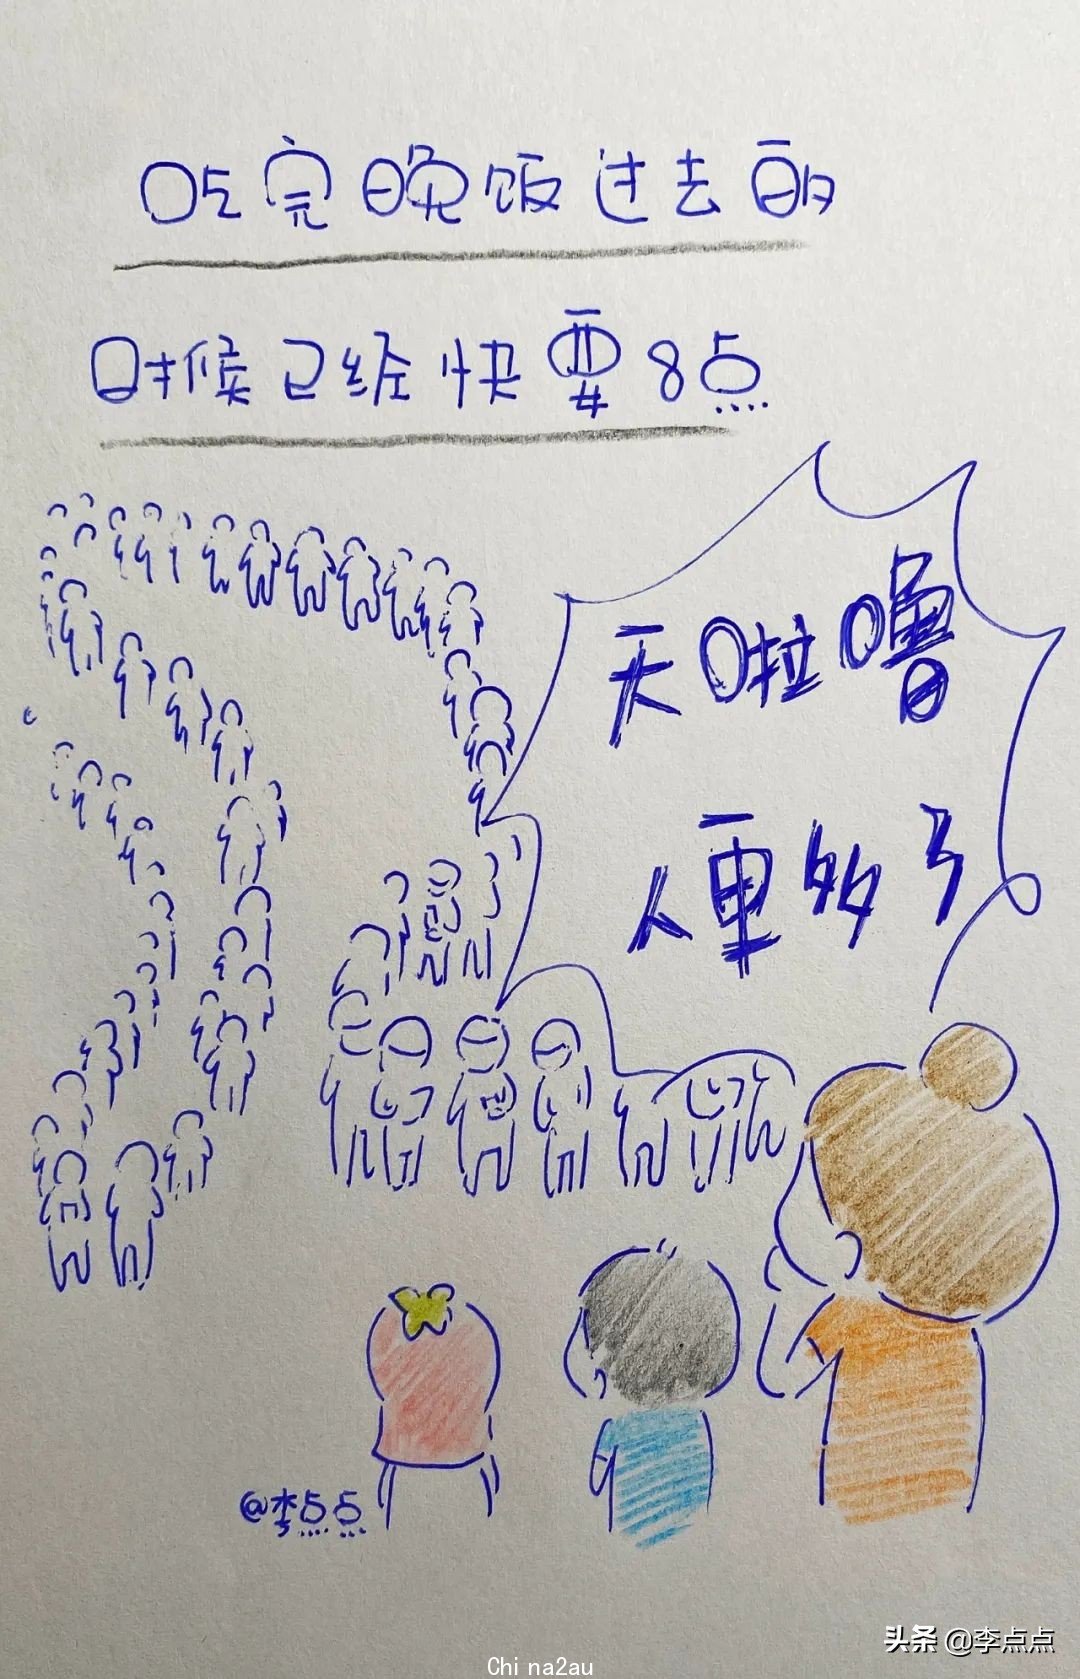 吃完晚饭过去的
时候已经快要8点
天啦噜
人更多了
@李点点
头条 @李点点
Chi na2au